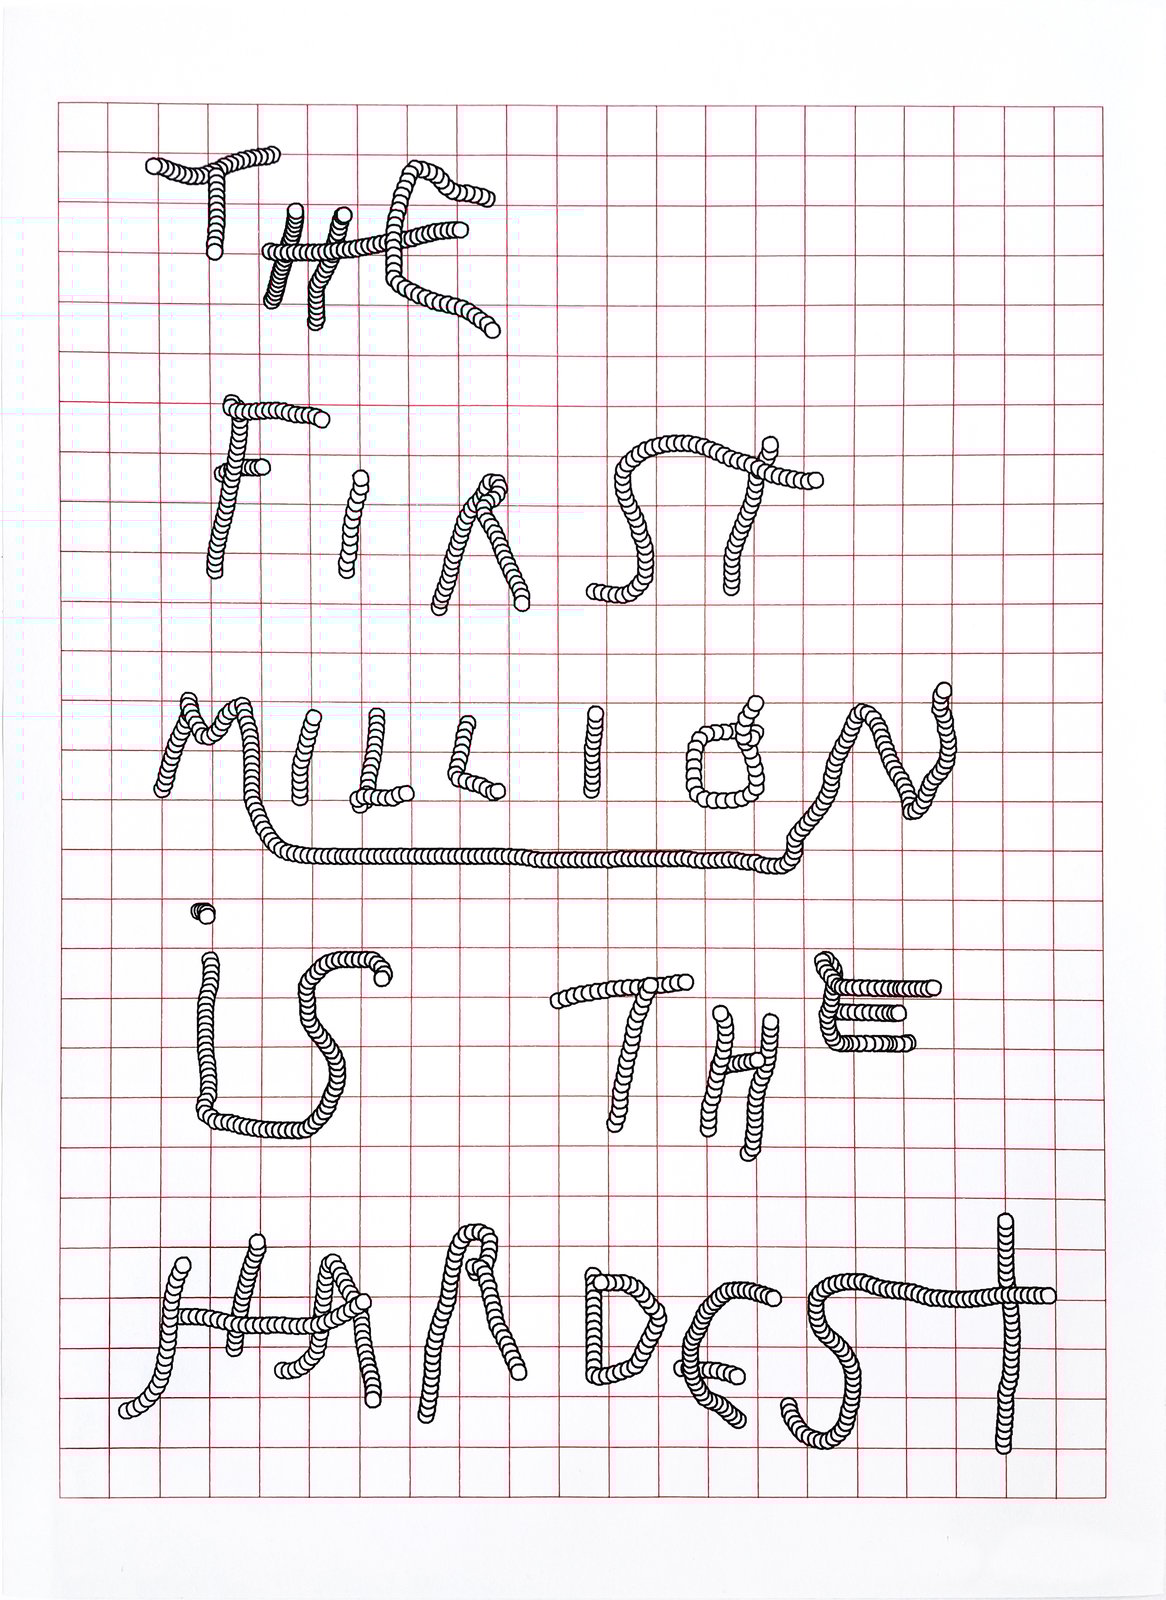 THE
FIRST
MILLION
iS THE
HARDEST